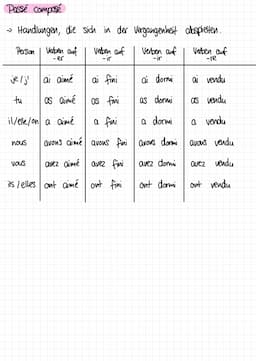 Passé composé
→ Handlungen, die sich in der Vergangenheit abspielten.
Person | Verben auf -er | Verben auf -ir | Verben auf -ir | Verben auf -re
je/j' | ai aimé | ai fini | ai dormi | ai vendu
tu | as aimé | as fini | as dormi | as vendu
il/elle/on | a aimé | a fini | a dormi | a vendu
nous | avons aimé | avons fini | avons dormi | avons vendu
vous | avez aimé | avez fini | avez dormi | avez vendu
ils/elles | ont aimé | ont fini | ont dormi | ont vendu